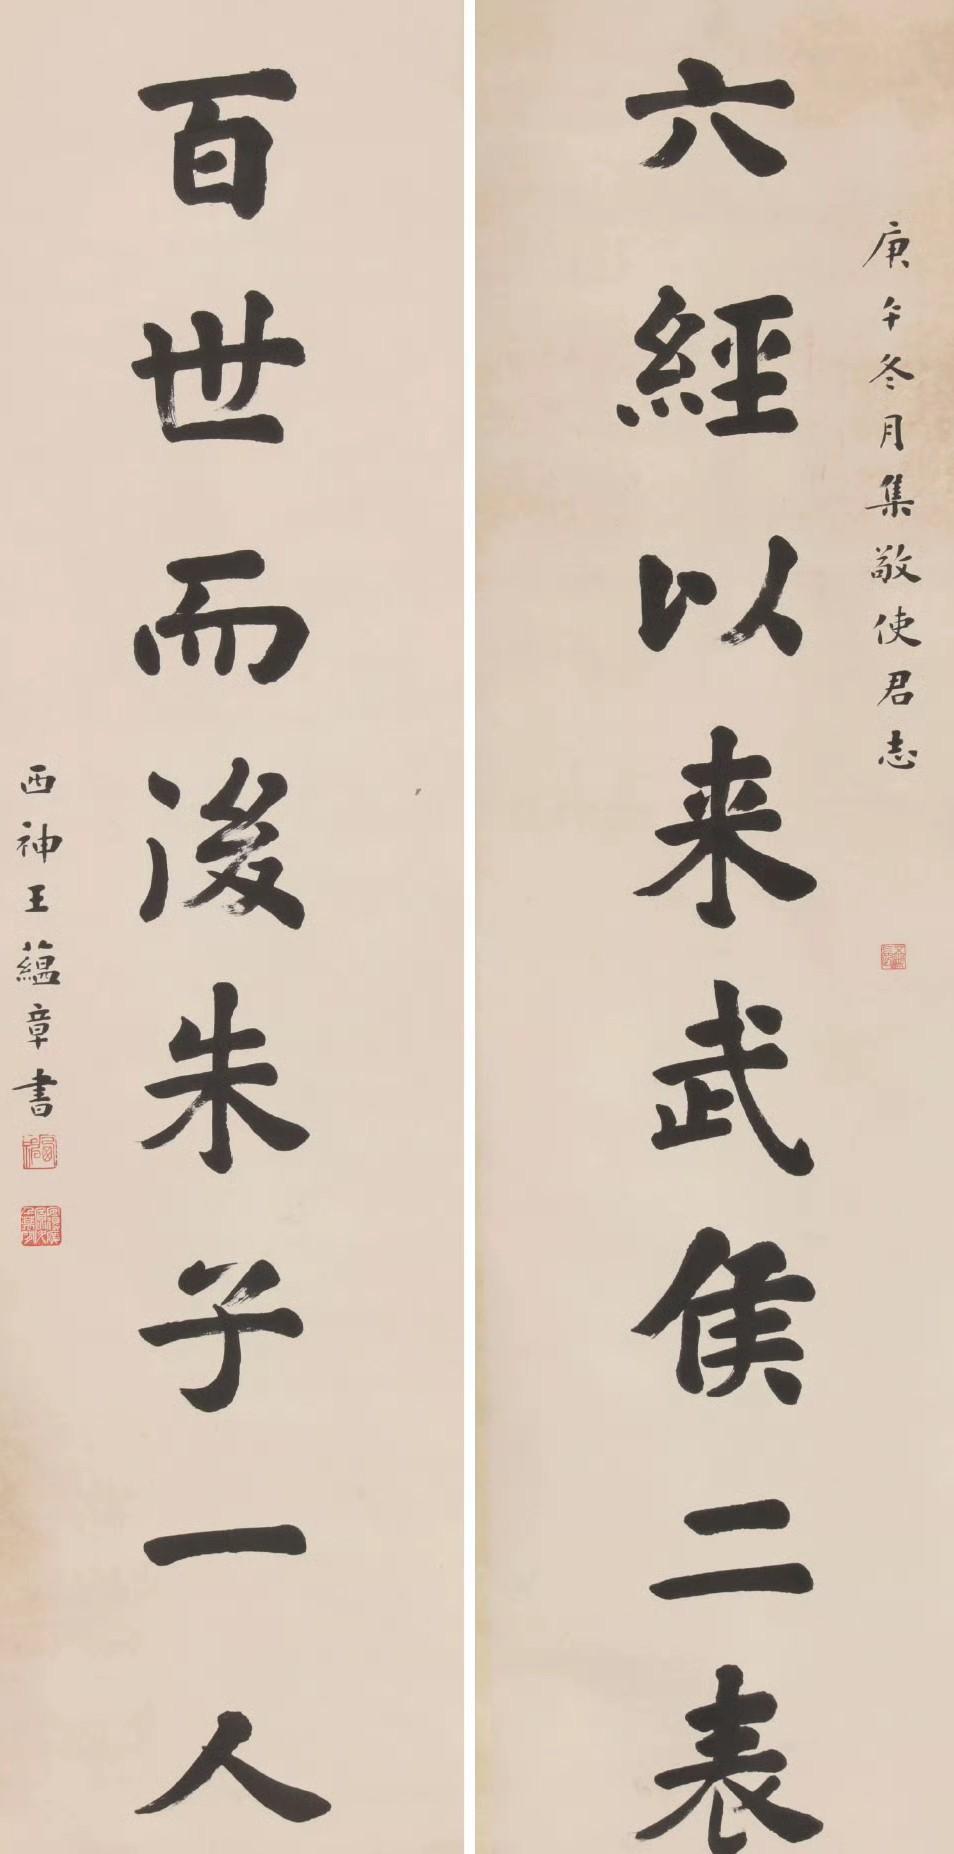 庚午冬月集敬使君志
六經以来武侯二表
百世而後朱子一人
西神王蘊章書